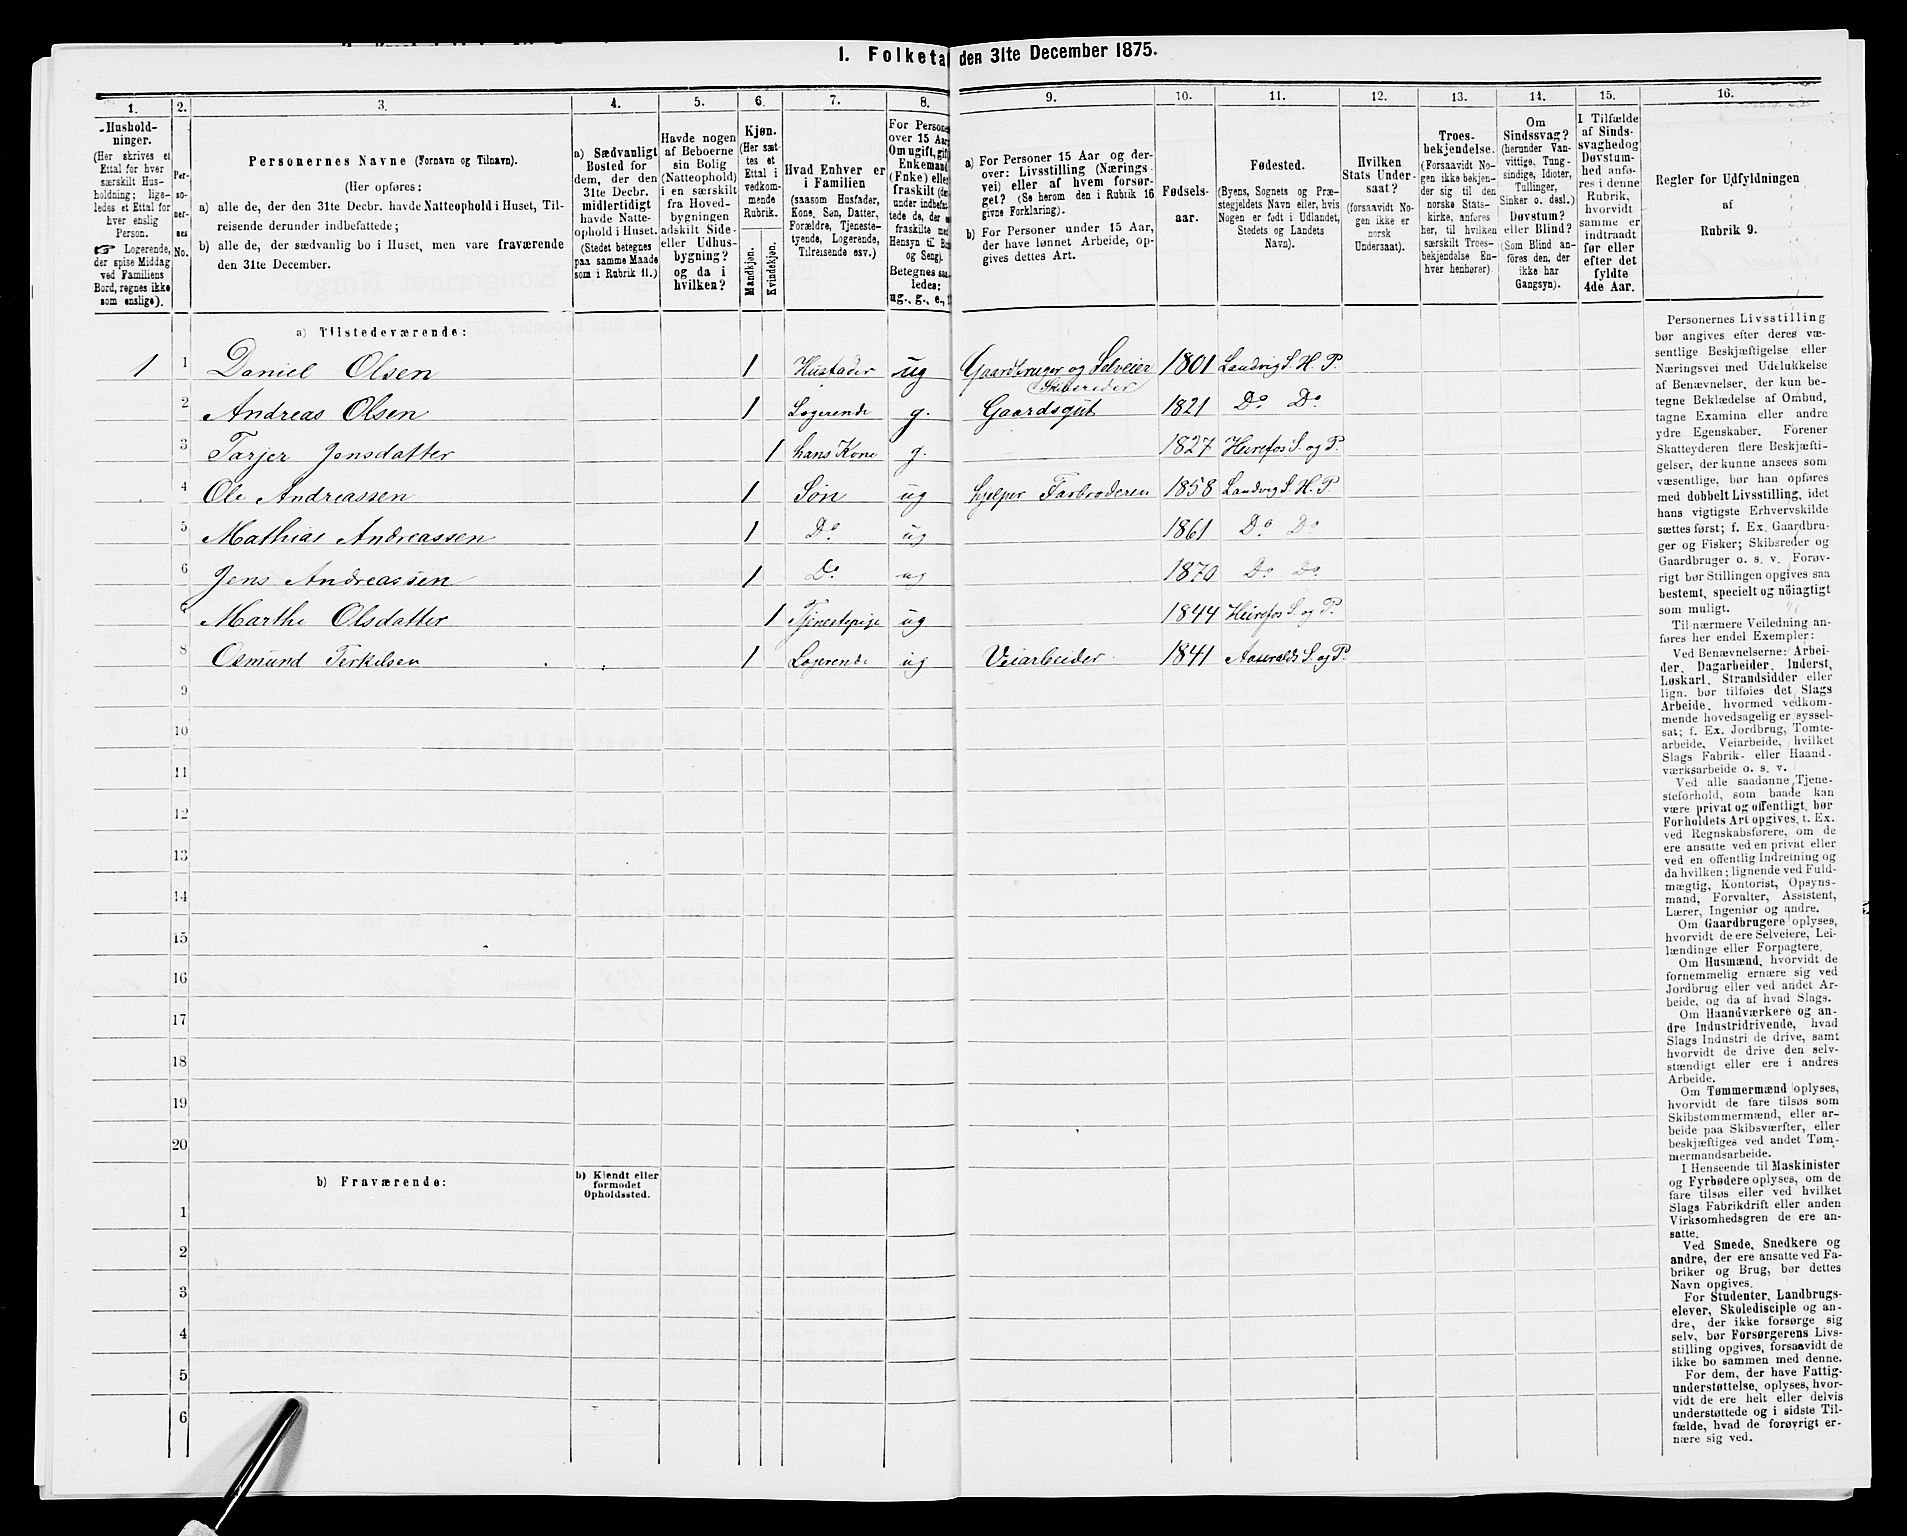 1. Folketal den 31te December 1875.
1. 2. 3. 4. 5. 6. 7. 8. 9. 10. 11. 12. 13. 14. 15. 16.
Hushold-
ninger.
(Her skrives et
Ettal for hver
særskilt Hus-
holdning; lige-
ledes et Ettal for
hver enslig
Person.
☞ Logerende,
der spise Middag
ved Familiens
Bord, regnes ikke
som enslige).
Per-
so-
ner-
nes
No.
Personernes Navne (Fornavn og Tilnavn).
(Her opføres:
a) alle de, der den 31te Decbr. havde Natteophold i Huset, Til-
reisende derunder indbefattede;
b) alle de, der sædvanlig bo i Huset, men vare fraværende
den 31te December.
a) Sædvanligt
Bosted for
dem, der den
31te Decbr.
midlertidigt
havde Natte-
ophold i Huset.
(Stedet betegnes
paa samme Maade
som i Rubrik 11.)
Havde nogen
af Beboerne
sin Bolig
(Natteophold)
i en særskilt
fra Hoved-
bygningen
adskilt Side-
eller Udhus-
bygning?
og da i
hvilken?
Kjøn.
(Her sæt-
tes et
Ettal i
vedkom-
mende
Rubrik.
Mandkjøn.
Kvindekjøn.
Hvad Enhver er
i Familien
(saasom Husfader,
Kone, Søn, Datter,
Forældre, Tjeneste-
tyende, Logerende,
Tilreisende osv.)
For Persone
over 15 Aar
Om ugift, gift
Enkemand
(Enke) elle
fraskilt (der
under indbefat-
tede de, der e
fraskilte med
Hensyn til Bo
og Seng).
Betegnes saa-
ledes:
ug., g., e., f
a) For Personer 15 Aar og der-
over: Livsstilling (Nærings-
vei) eller af hvem forsør-
get? (Se herom den i Rubrik 16
givne Forklaring).
b) For Personer under 15 Aar,
der have lønnet Arbeide, op-
gives dettes Art.
Fødsels-
aar.
Fødested.
(Byens, Sognets og Præ-
stegjeldets Navn eller, hvis
Nogen er født i Udlandet,
Stedets og Landets
Navn).
Hvilken
Stats Under-
saat?
(forsaavidt No-
gen ikke er
norsk
Undersaat).
Troes-
bekjendelse.
(Forsaavidt No-
gen ikke bekjen-
der sig til den
norske Stats-
kirke, anføres
her, til hvilken
særskilt Troes-
bekjendelse En-
hver henhører).
Om
Sindssvag?
(herunder Van-
vittige, Tung-
sindige, Idioter,
Tullinger,
Sinker o. desl.)
Døvstum?
eller Blind?
(Som Blind an-
føres den, der
ikke har
Gangsyn).
I Tilfælde
af Sinds-
svaghed og
Døvstum-
hed anfø-
res i denne
Rubrik,
hvorvidt
samme er
indtraadt
før eller
efter det
fyldte
4de Aar.
Regler for Udfyldningen
af
Rubrik 9.
a) Tilstedeværende:
1 1 Daniel Olsen 1 Husfader ug Gaardbruger og Selveier Skibsreder 1801 Landvig S. H. P.
2 Andreas Olsen 1 Logerende g. Gaardsgut 1821 Do Do
3 Tarjer Jensdatter 1 hans Kone g. 1827 Heirefos S. og P.
4 Ole Andreassen 1 Søn ug hjelper Farbroderen 1858 Landvig S. H. P.
5 Mathias Andreassen 1 Do ug 1861 Do Do
6 Jens Andreassen 1 Do ug 1870 Do Do
7 Marthe Olsdatter 1 Tjenestepige ug 1844 Heirefos S. og P.
8 Osmund Terkelsen 1 Logerende ug Veiarbeider 1841 Aaseralds S. og P.
9
10
11
12
13
14
15
16
17
18
19
20
b) Fraværende:
b) Kjendt eller
formodet
Opholdssted.
1
2
3
4
5
6
Personernes Livsstilling
bør angives efter deres væ-
sentlige Beskjæftigelse eller
Næringsvei med Udelukkelse
af Benævnelser, der kun be-
tegne Beklædelse af Ombud,
tagne Examina eller andre
ydre Egenskaber. Forener
Skatteyderen flere Beskjæfti-
gelser, der kunne ansees som
væsentlige, bør han opføres
med dobbelt Livsstilling, idet
hans vigtigste Erhvervskilde
sættes først; f. Ex. Gaardbru-
ger og Fisker; Skibsreder og
Gaardbruger o. s. v. Forøv-
rigt bør Stillingen opgives saa
bestemt, specielt og nøiagtigt
som muligt.
Til nærmere Veiledning an-
føres her endel Exempler:
Ved Benævnelserne: Arbei-
der, Dagarbeider, Inderst,
Løskarl, Strandsidder eller
lign. bør tilføies det Slags
Arbeide, hvormed vedkom-
mende hovedsagelig er syssel-
sat; f. Ex. Jordbrug, Tomte-
arbeide, Veiarbeide, hvilket
Slags Fabrik- eller Haand-
værksarbeide o. s. v.
Ved alle saadanne Tjene-
steforhold, som baade kan
være privat og offentligt, bør
Forholdets Art opgives, t. Ex.
ved Regnskabsførere, om de
ere ansatte ved en privat eller
ved en offentlig Indretning og
da hvilken; lignende ved Fuld-
mægtig, Kontorist, Opsyns-
mand, Forvalter, Assistent,
Lærer, Ingeniør og andre.
Om Gaardbrugere oplyses,
hvorvidt de ere Selveiere, Lei-
lændinge eller Forpagtere.
Om Husmænd, hvorvidt de
fornemmelig ernære sig ved
Jordbrug eller ved andet Ar-
beide, og da af hvad Slags.
Om Haandværkere og an-
dre Industridrivende, hvad
Slags Industri de drive, samt
hvorvidt de drive den selv-
stændigt eller ere i andres
Arbeide.
Om Tømmermænd oplyses,
hvorvidt de fare tilsøs som
Skibstømmermænd, eller ar-
beide paa Skibsværfter, eller
beskjæftiges ved andet Tøm-
mermandsarbeide.
I Henseende til Maskinister
og Fyrbødere oplyses, om de
fare tilsøs eller ved hvilket
Slags Fabrikdrift eller anden
Virksomhedsgren de ere an-
satte.
Ved Smede, Snedkere og
andre, der ere ansatte ved Fa-
briker og Brug, bør dettes
Navn opgives.
For Studenter, Landbrugs-
elever, Skoledisciple og an-
dre, der ikke forsørge sig
selv, bør Forsørgerens Livs-
stilling opgives, forsaavidt de
ikke bo sammen med denne.
For dem, der have Fattig-
understøttelse, oplyses, hvor-
vidt de ere helt eller delvis
understøttede og i sidste Til-
fælde, hvad de forøvrigt er-
nære sig ved.